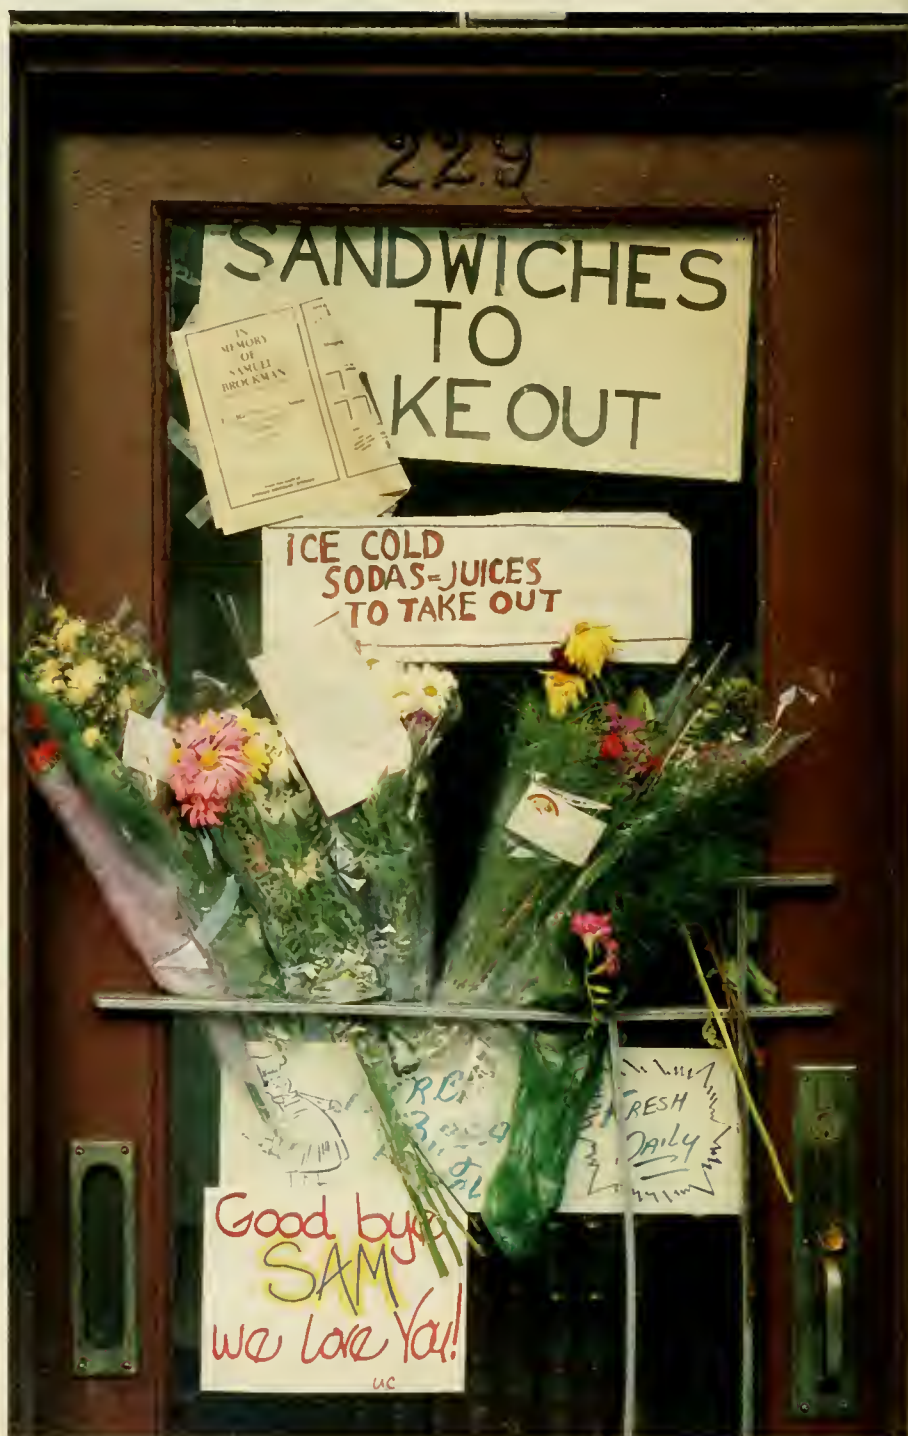 229
SANDWICHES
TO
KE OUT
IN
MEMORY
OF
SAMUEL
BROCKMAN
ICE COLD
SODAS-JUICES
TO TAKE OUT
FRESH
DAILY
Good bye
SAM
we Love You!
UC